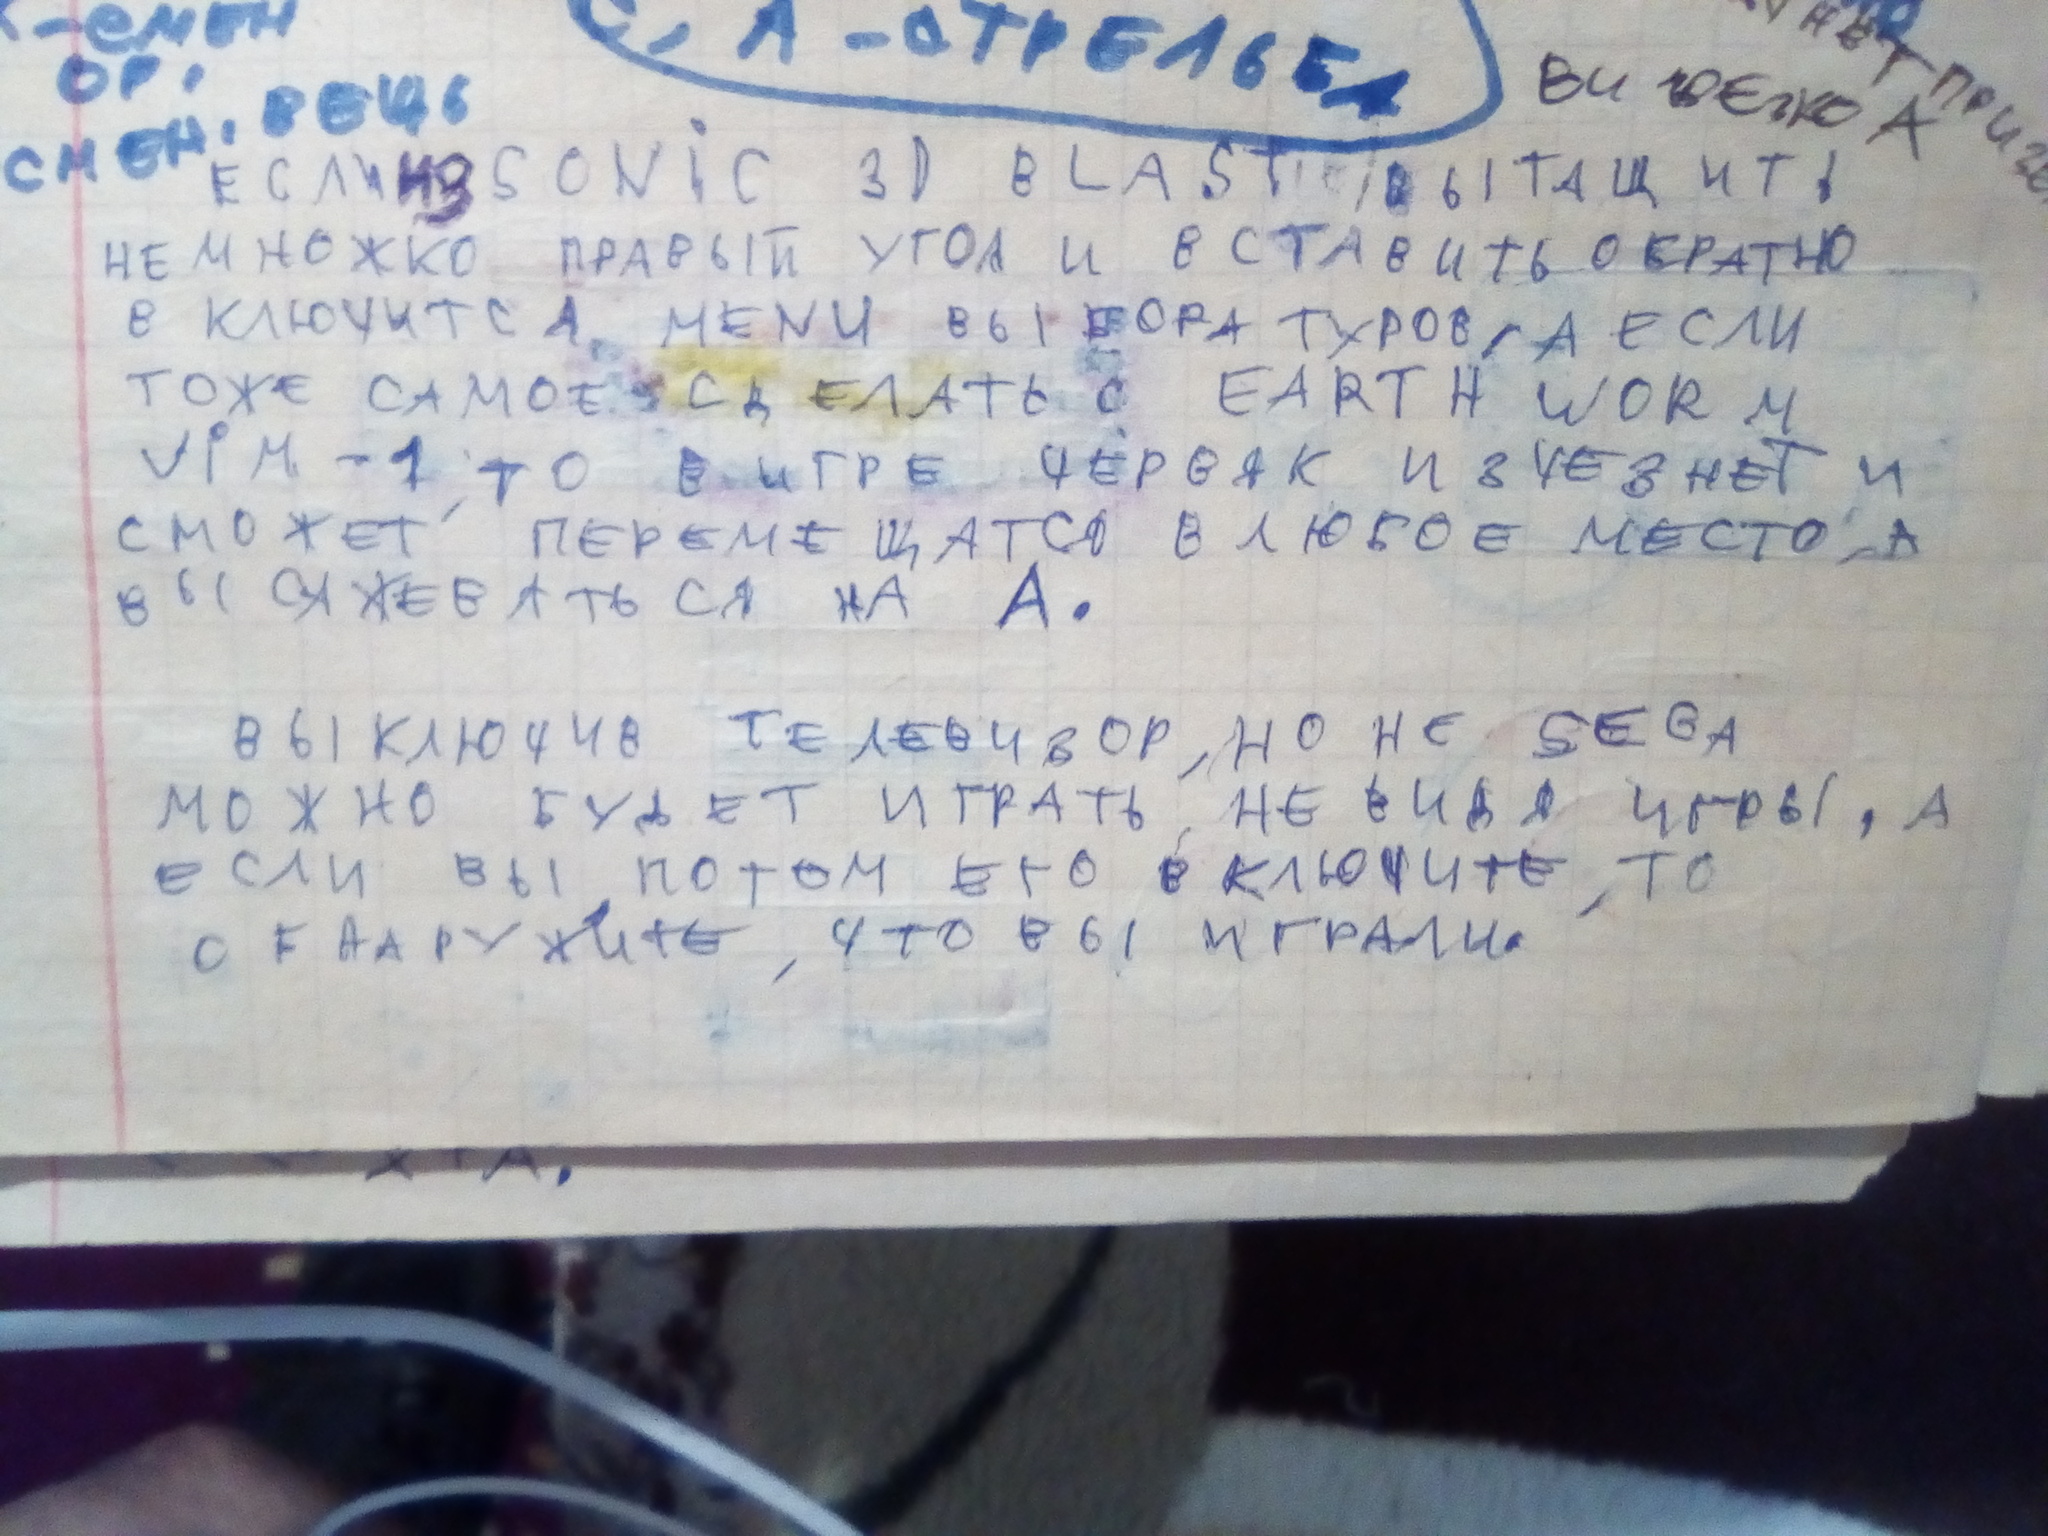 -СМЕН
ОР,
СМЕН. ВЕЩЬ
С, А -СТРЕЛЬБЕА
НЕТ
ЕСЛИ ИЗ SONiC 3D BLAST ВЫТАЩИТЬ
НЕМНОЖКО ПРАВЫЙ УГОЛ И ВСТАВИТЬ ОБРАТНО
ВКЛЮЧИТСА MENU ВЫБОРА ТУРОВ, А ЕСЛИ
ТОЖЕ САМОЕ СДЕЛАТЬ С EARTH WORM
ViM -1, ТО В ИГРЕ ЧЕРВЯК ИЗЧЕЗНЕТ И
СМОЖЕТ ПЕРЕМЕЩАТСЯ В ЛЮБОЕ МЕСТО, А
ВЫСАЖЕВАТЬСЯ НА А.
ВЫКЛЮЧИВ ТЕЛЕВИЗОР, НО НЕ SEGA
МОЖНО БУДЕТ ИГРАТЬ, НЕ ВИДЯ ИГРЫ, А
ЕСЛИ ВЫ ПОТОМ ЕГО ВКЛЮЧИТЕ, ТО
ОБНАРУЖИТЕ, ЧТО ВЫ ИГРАЛИ.